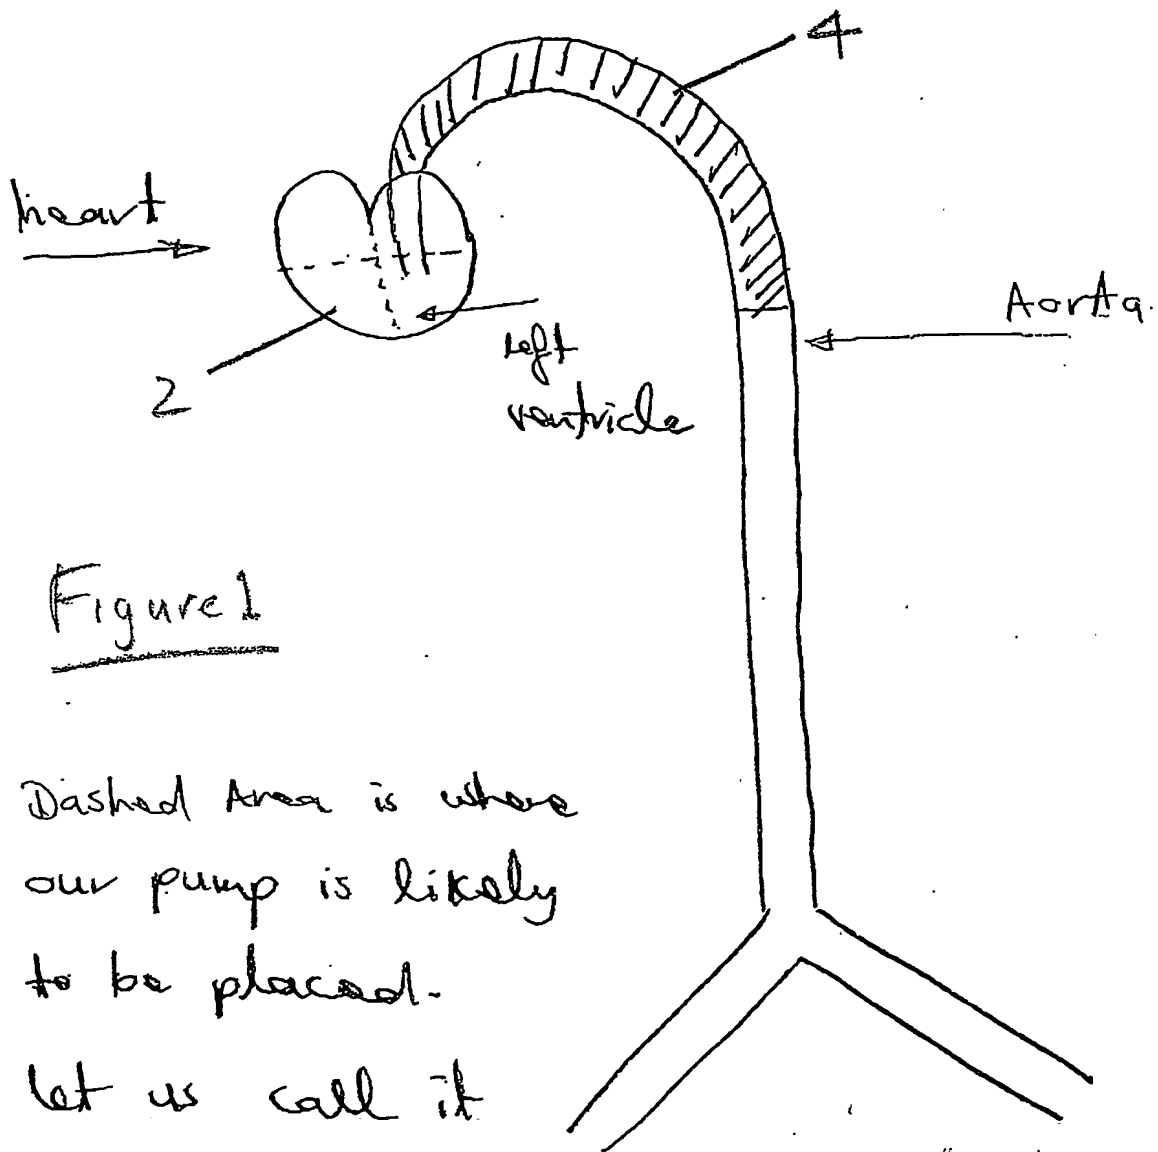 4
heart
Aorta
left
ventricle
2
Figure 1
Dashed Area is where
our pump is likely
to be placed.
let us call it